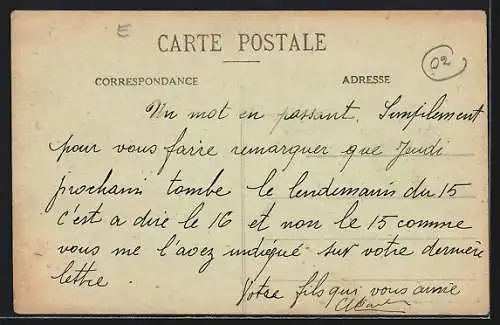 E
CARTE POSTALE
02
CORRESPONDANCE
ADRESSE
Un mot en passant. Simplement
pour vous faire remarquer que Jeudi
prochain tombe le lendemain du 15
c'est a dire le 16 et non le 15 comme
vous me l'avez indiqué sur votre dernière
lettre.
Votre fils qui vous aime